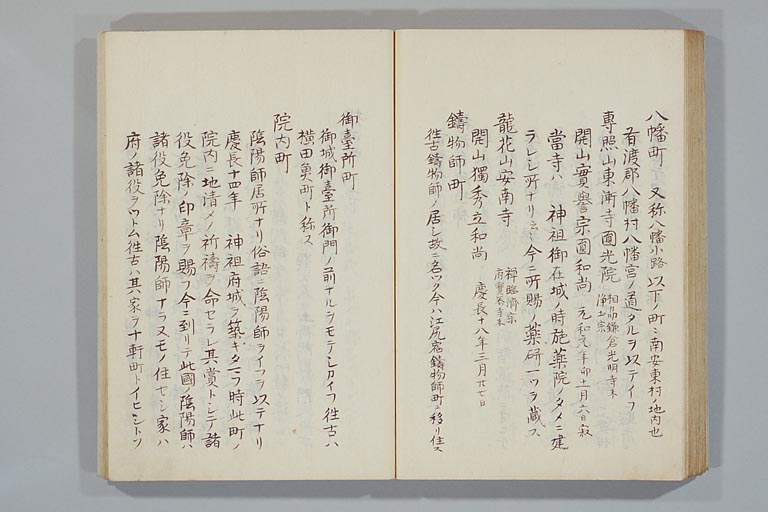 八幡町 又称八幡小路 以下ノ町ニ南安東村ノ地内也
有渡郡八幡村八幡宮ノ道タルヲ以テイフ
專照山東漸寺圓光院 相州鎌倉光明寺末 浄土宗
開山實譽宗圓和尚 元和元年卯十月六日寂
當寺ハ 神祖御在城ノ時施薬院ノタメニ建
ラレシ所ナリト云今ニ所賜ノ薬研一ツヲ蔵ス
龍花山安南寺 禅臨濟宗 府寳泰寺末
開山獨秀立和尚 慶長十八年三月廿七日
鑄物師町
往古鑄物師ノ居レ故ニ名ツク今ハ江尻宿鑄物師町ニ移リ住ス
御臺所町
御城御臺所御門ノ前ナルヲモテシカイフ往古ハ
横田魚町ト称ス
院内町
陰陽師居所ナリ俗語ニ陰陽師ヲイフヲ以テナリ
慶長十四年 神祖府城ヲ築キタマフ時此町ノ
院内ニ地清メノ祈祷ヲ命セラレ其賞トシテ諸
役免除ノ印章ヲ賜フ今ニ到リテ此國ノ陰陽師ハ
諸役免除ナリ陰陽師ナラヌモノ住セシ家ハ
府ノ諸役ヲツトム往古ハ其家ヲ十軒町トイヒシトソ